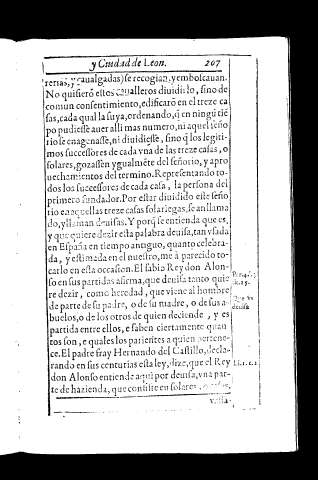 y Ciudad de Leon. 207
rerias, y caualgadas) se recogian, y emboscauan.
No quisierõ estos caualleros diuidirlo, sino de
comun consentimiento, edificarõ en el treze ca
sas, cada qual la suya, ordenando, q̃ en ningũ tiẽ
po pudiesse auer alli mas numero, ni aquel seño
rio se enagenasse, ni diuidiesse, sino q̃ los legiti-
mos successores de cada vna de las treze casas, o
solares, gozassen ygualmẽte del señorio, y apro
uechamientos del termino. Representando to-
dos los successores de cada casa, la persona del
primero fundador. Por estar diuidido este seño
rio en aquellas treze casas solariegas, se an llama
do, y llaman deuisas. Y porq̃ se entienda que es,
y que quiere dezir esta palabra deuisa, tan vsada
en España en tiempo antiguo, quanto celebra-
da, y estimada en el nuestro, me à parecido to-
carlo en esta occasion. El sabio Rey don Alon-
so en sus partidas afirma, que deuisa tanto quie
re dezir, como heredad, que viene al hombre
de parte de su padre, o de su madre, o de sus a-
buelos, o de los otros de quien deciende, y es
partida entre ellos, e saben ciertamente quan
tos son, e quales los parientes a quien pertene-
ce. El padre fray Hernando del Castillo, decla-
rando en sus centurias esta ley, dize, que el Rey
don Alonso entiende aqui por deuisa, vna par-
te de hazienda, que consiste en solares,
deuisa